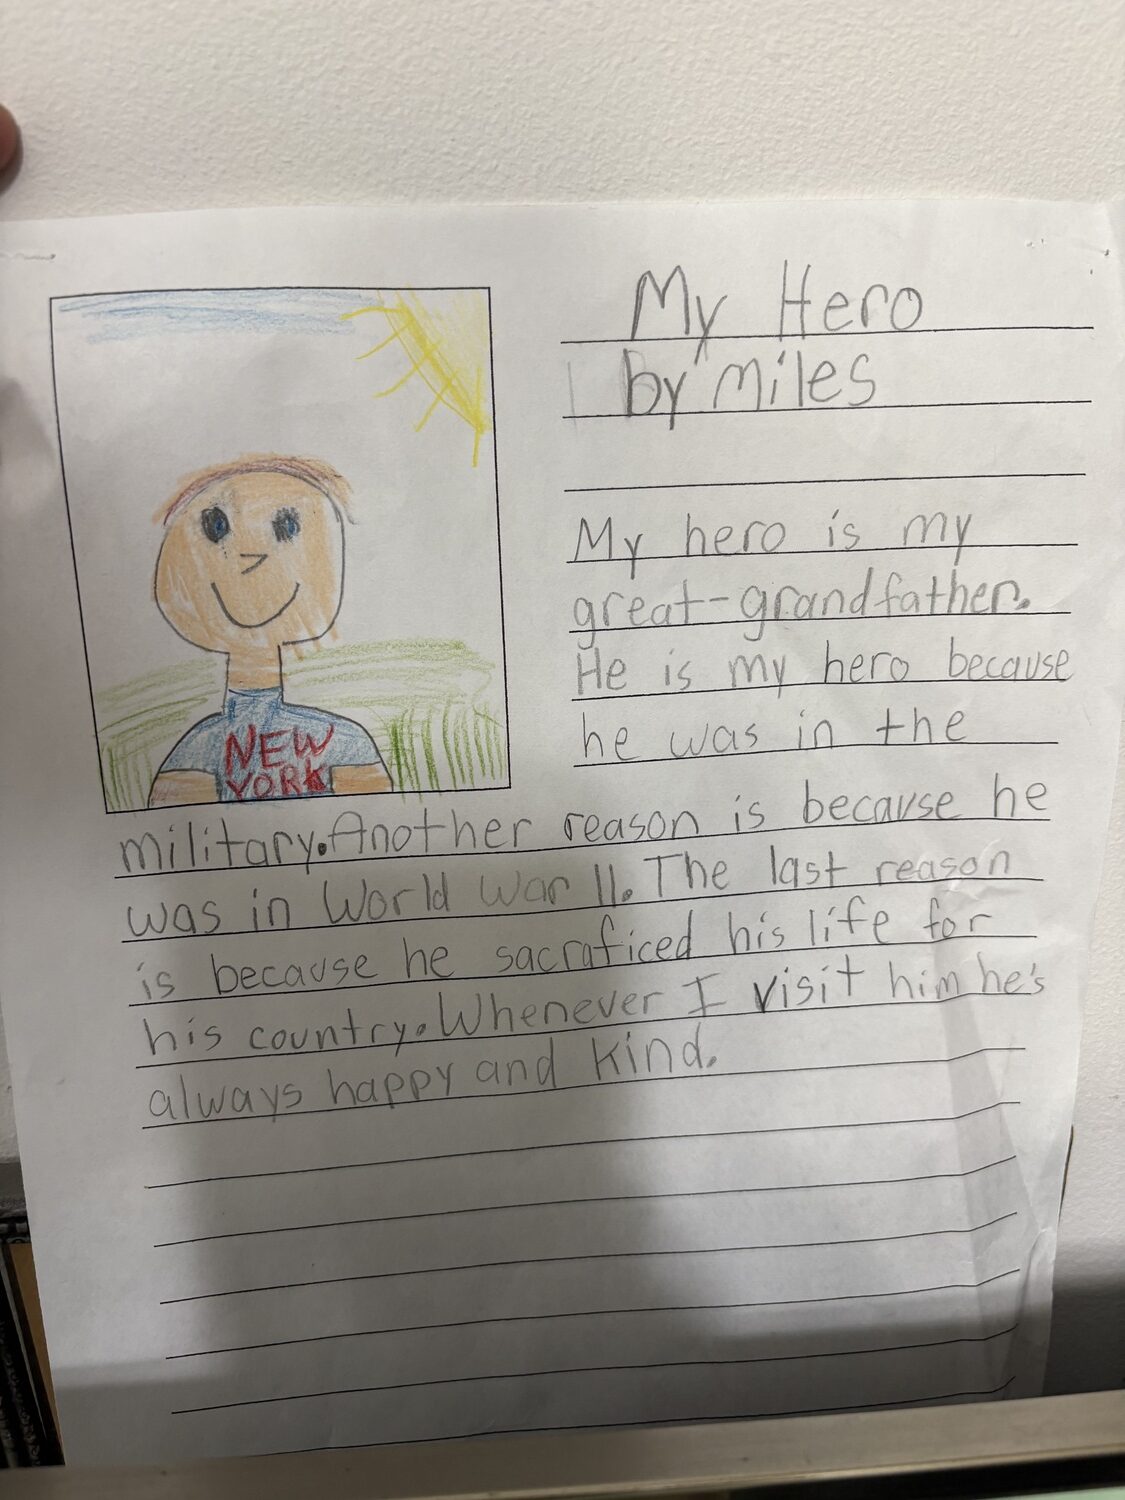 My Hero
by Miles
NEW
YORK
My hero is my
great-grandfather.
He is my hero because
he was in the
military. Another reason is because he
was in World War II. The last reason
is because he sacraficed his life for
his country. Whenever I visit him he's
always happy and kind.